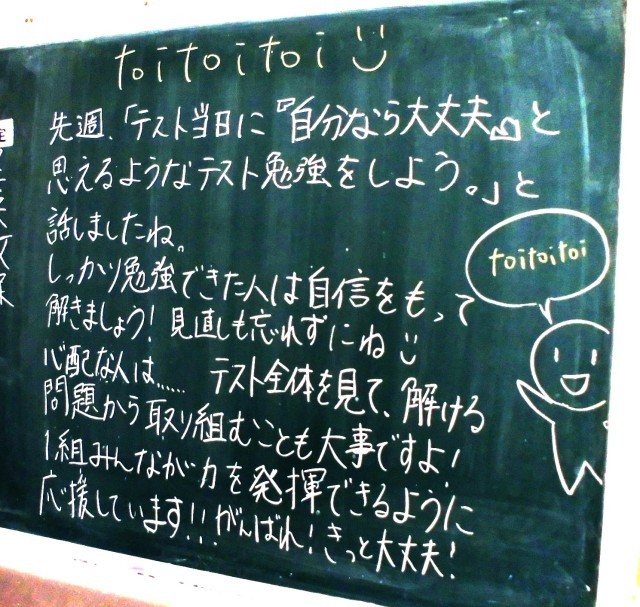 toitoitoi
先週、「テスト当日に『自分なら大丈夫。』と
思えるようなテスト勉強をしよう。」と
話しましたね。
しっかり勉強できた人は自信をもって
解きましょう!見直しも忘れずにね
心配な人は…… テスト全体を見て、解ける
問題から取り組むことも大事ですよ!
1組みんなが力を発揮できるように
応援しています!!がんばれ!きっと大丈夫!
toitoitoi